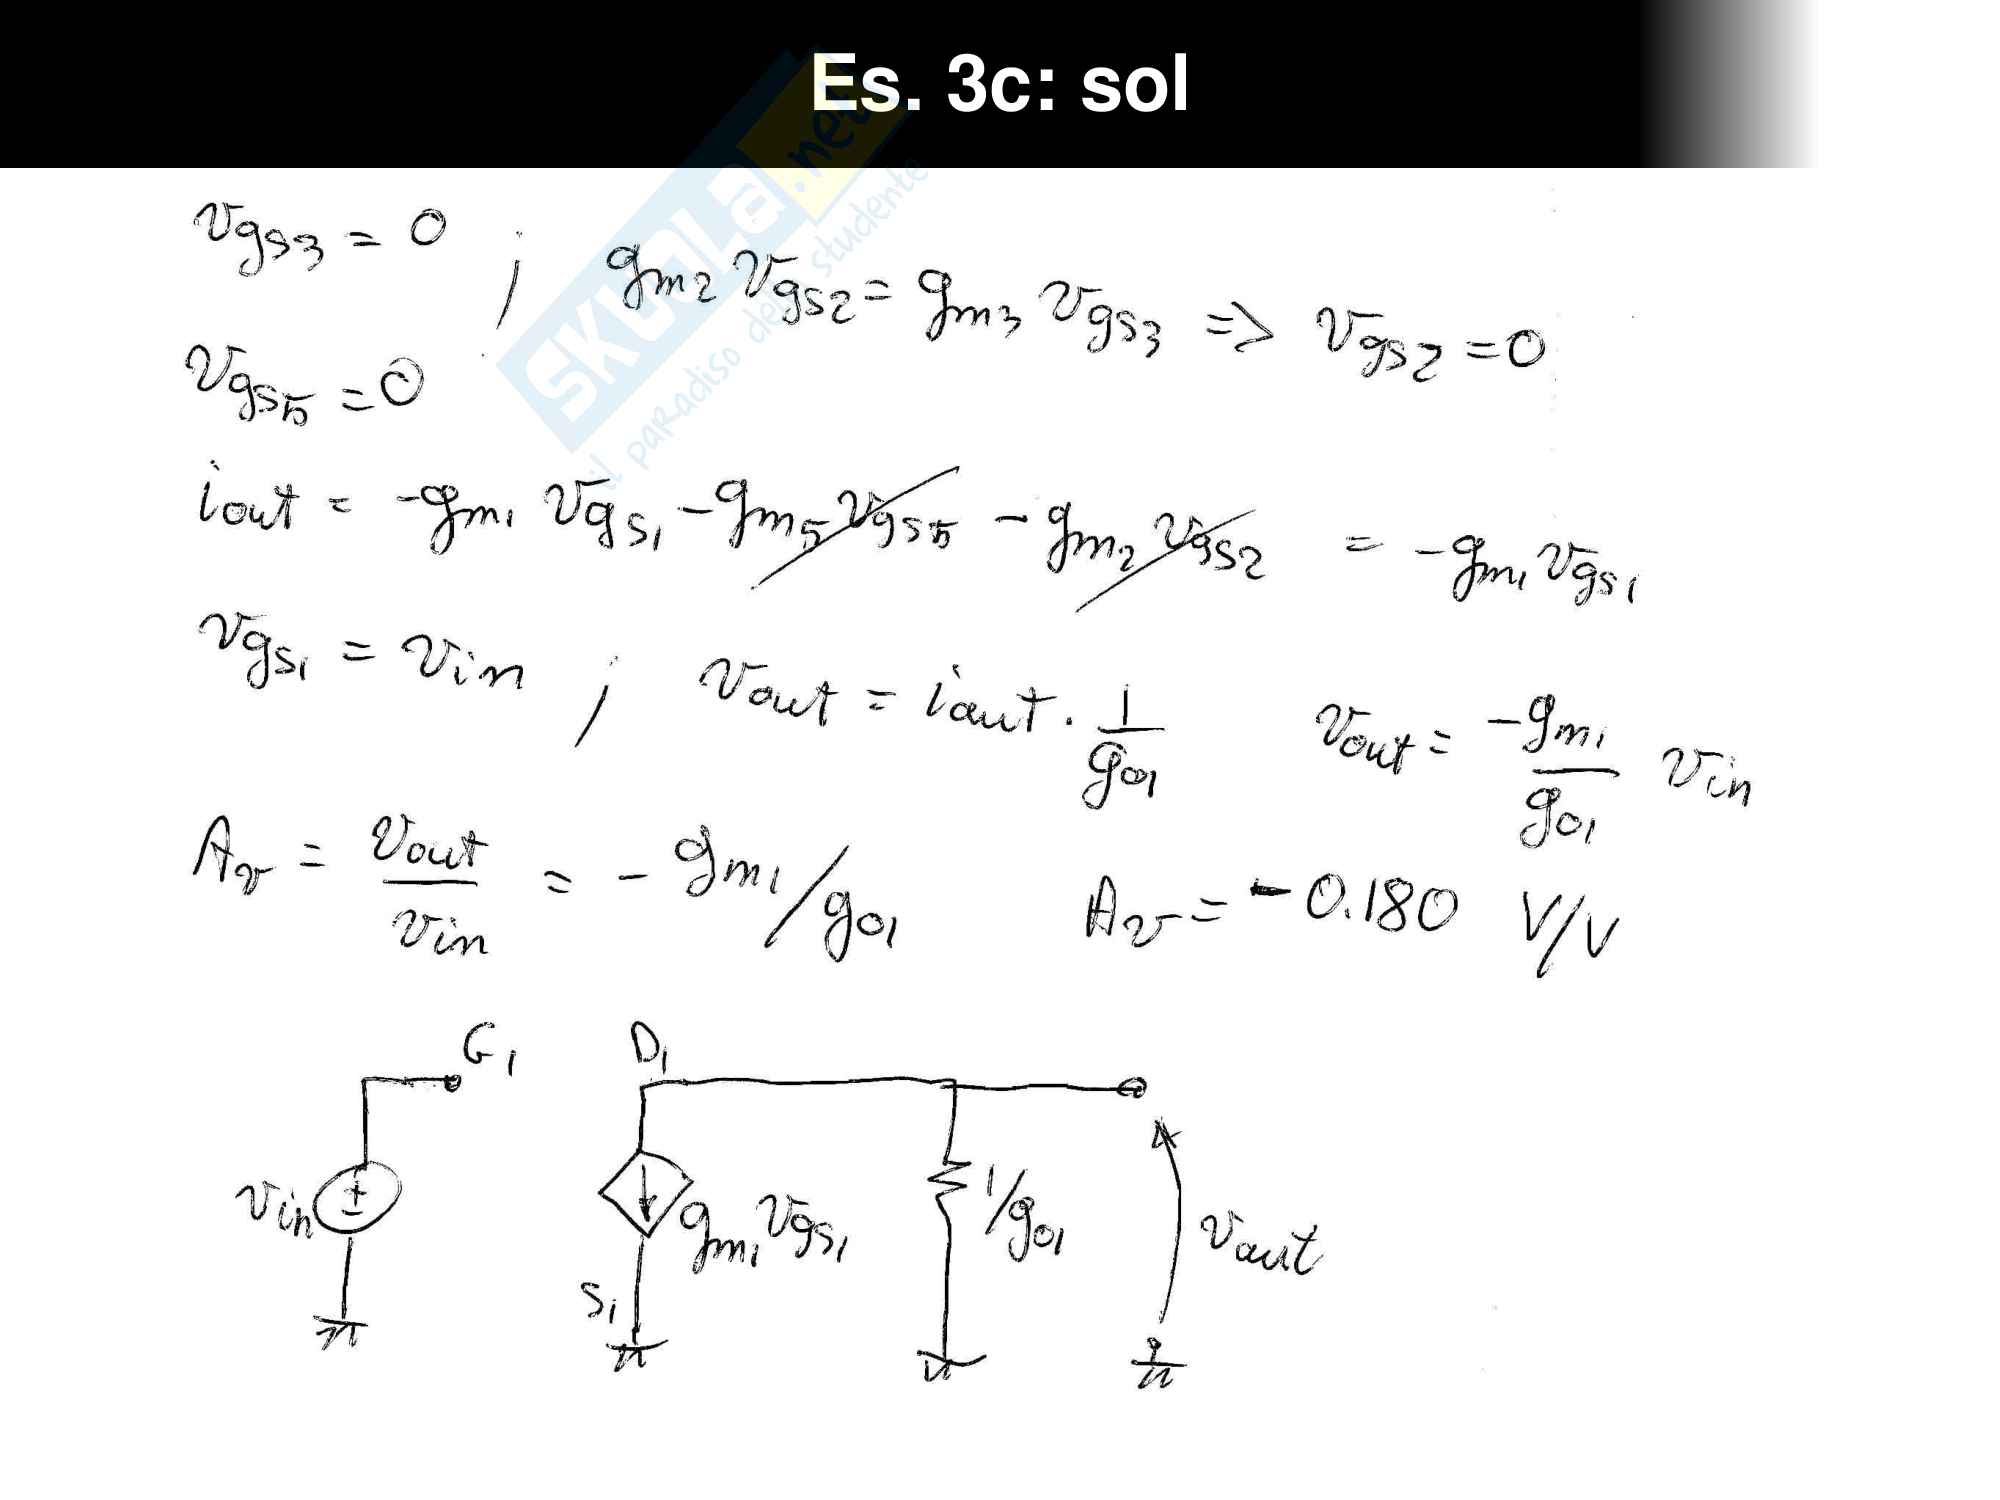 Es. 3c: sol
SKUOLA.net
il paradiso dello studente
vgs3 = 0 ; gm2 vgs2 = gm3 vgs3 => vgs2 = 0
vgs5 = 0
iout = -gm1 vgs1 - gm5 vgs5 - gm2 vgs2 = -gm1 vgs1
vgs1 = vin ; vout = iout · 1/go1 vout = -gm1/go1 vin
Av = vout/vin = - gm1/go1 Av = -0.180 V/V
G1 D1
vin ± gm1 vgs1 1/go1 vout
S1